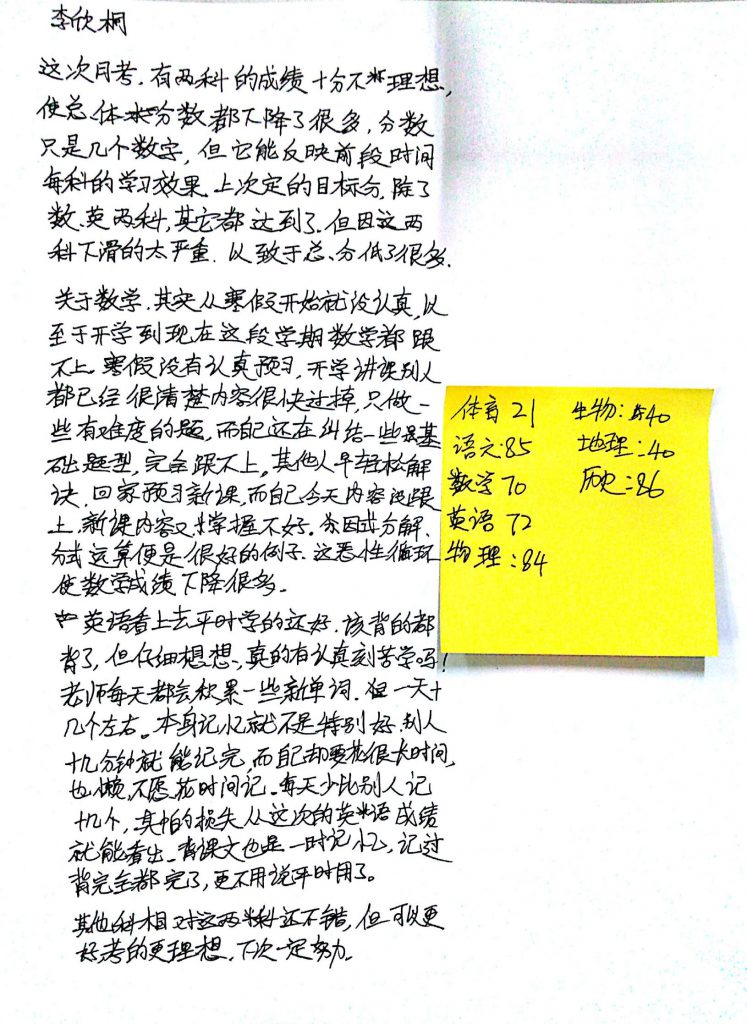 李欣桐
这次月考，有两科的成绩十分不理想，
使总体分数都下降了很多，分数
只是几个数字，但它能反映前段时间
每科的学习效果。上次定的目标分，除了
数、英两科，其它都达到了。但因这两
科下滑的太严重，以致于总分低了很多。
关于数学，其实从寒假开始就没认真，以
至于开学到现在这段学期数学都跟
不上。寒假没有认真预习，开学讲课别人
都已经很清楚内容很快过掉，只做一
些有难度的题，而自己还在纠结一些基
础题型，完全跟不上，其他人早轻松解
决，回家预习新课，而自己今天内容没跟
上，新课内容又掌握不好。 因式分解、
分式运算便是很好的例子。这恶性循环
使数学成绩下降很多。
英语看上去平时学的还好，该背的都
背了，但仔细想想，真的有认真刻苦学吗！
老师每天都会积累一些新单词，一天十
几个左右。本身记忆就不是特别好，别人
十几分钟就能记完，而自己却要花很长时间，
也懒，不愿花时间记。每天少比别人记
十几个，其怕的损失从这次的英语成绩
就能看出。背课文也是一时记忆，记过
背完全都完了，更不用说平时用了。
其他科相对这两科还不错，但可以更
好考的更理想，下次一定努力。
体育 21
语文：85
数学 70
英语 72
物理：84
生物：40
地理：40
历史：86